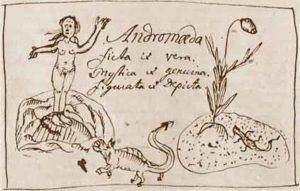 Andromæda
ficta et vera.
Mystica et genuina.
figurata et depicta